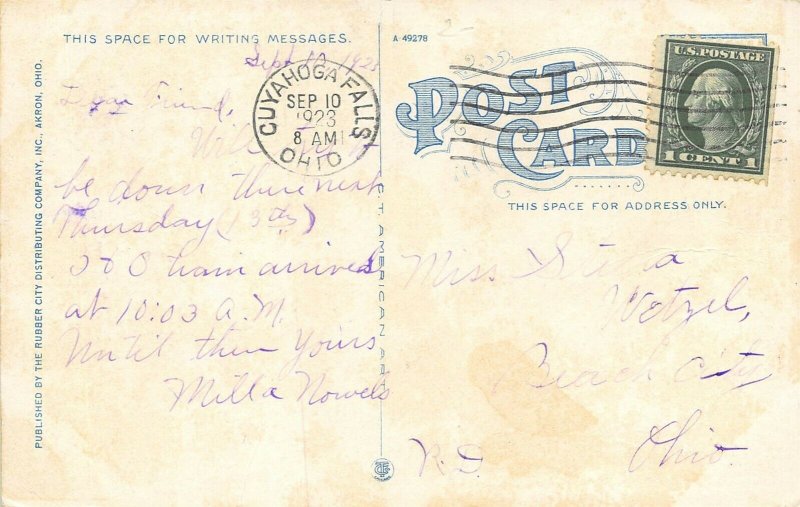 THIS SPACE FOR WRITING MESSAGES.
Sept 10, 1923
Dear Friend,
Will try to
be down there next
Thursday (13th)
B & O train arrives
at 10:03 A.M.
Until then Yours
Milla Nowels
CUYAHOGA FALLS
SEP 10
1923
8 AM
OHIO
PUBLISHED BY THE RUBBER CITY DISTRIBUTING COMPANY, INC., AKRON, OHIO.
C.T. AMERICAN ART
A-49278
POST
CARD
U.S. POSTAGE
1 CENT 1
THIS SPACE FOR ADDRESS ONLY.
Miss
Wetzel,
Beach City
Ohio.
R.D.